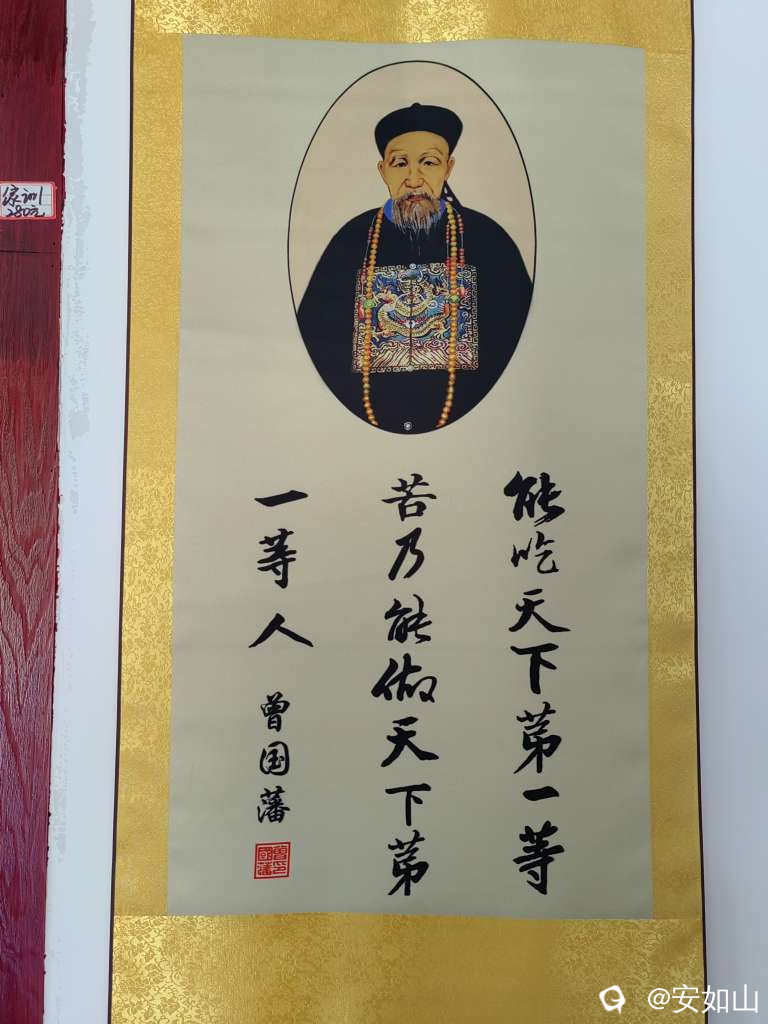 能吃天下第一等
苦乃能做天下第
一等人
曾国藩
家训
280元
@安如山